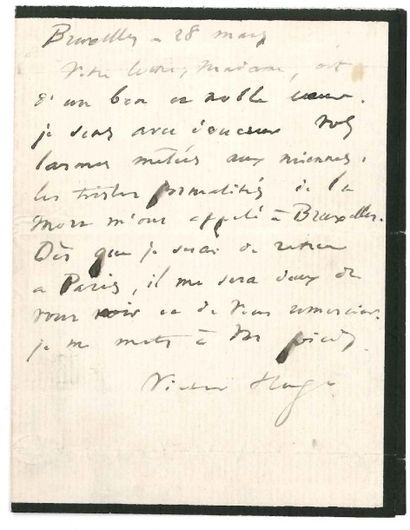 Bruxelles 28 mars
Votre lettre, Madame, est
d'un bon et noble cœur.
je sens avec douceur vos
larmes mêlées aux miennes.
les tristes formalités de la
mort m'ont appelé à Bruxelles.
Dès que je serai de retour
à Paris, il me sera doux de
vous voir et de vous remercier.
je me mets à vos pieds.
Victor Hugo